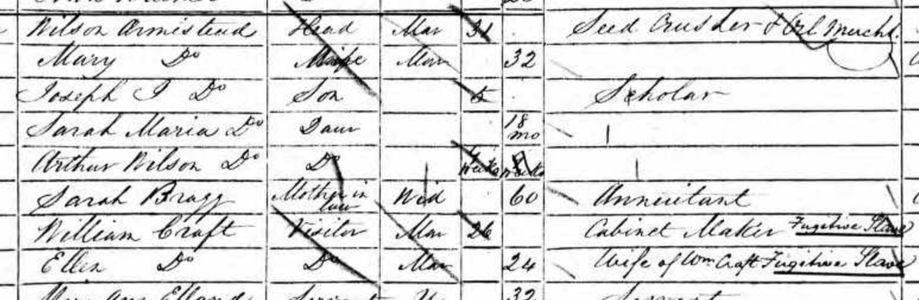 Wilson Armistead Head Mar 31 Seed Crusher & Oil Mercht.
Mary Do Wife Mar 32
Joseph J Do Son 5 Scholar
Sarah Maria Do Daur 18 mo
Arthur Wilson Do Do weeks
Sarah Bragg Mother in law Wid 60 Annuitant
William Craft Visitor Mar 26 Cabinet Maker Fugitive Slave
Ellen Do Do Mar 24 Wife of Wm Craft Fugitive Slave
Mary Ann Servant 32 Servant